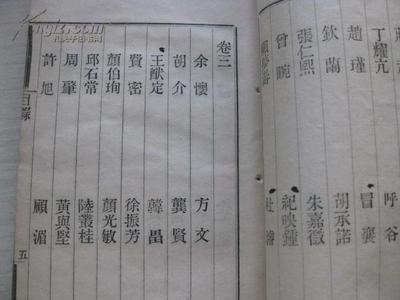 丁耀亢 呼谷
趙瑾 冒襄
欽蘭 胡承諾
張仁熙 朱嘉徵
曾畹 紀映鍾
杜濬
卷三
余懷 方文
胡介 龔賢
王猷定 韓畕
費密 徐振芳
顏伯珣 顏光敏
邱石常 陸叢桂
周肇 黃與堅
許旭 顧湄
目錄 五